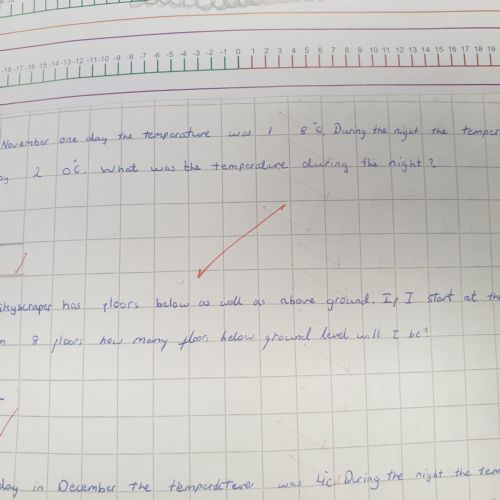 -18 -17 -16 -15 -14 -13 -12 -11 -10 -9 -8 -7 -6 -5 -4 -3 -2 -1 0 1 2 3 4 5 6 7 8 9 10 11 12 13 14 15 16 17 18 19
November one day the temperature was 1 8°C. During the night the temper
by 2 0°C. What was the temperature during the night?
skyscraper has floors below as well as above ground. If I start at the
8 floors how many floors below ground level will I be?
day in December the temperature was 4°C. During the night the tem